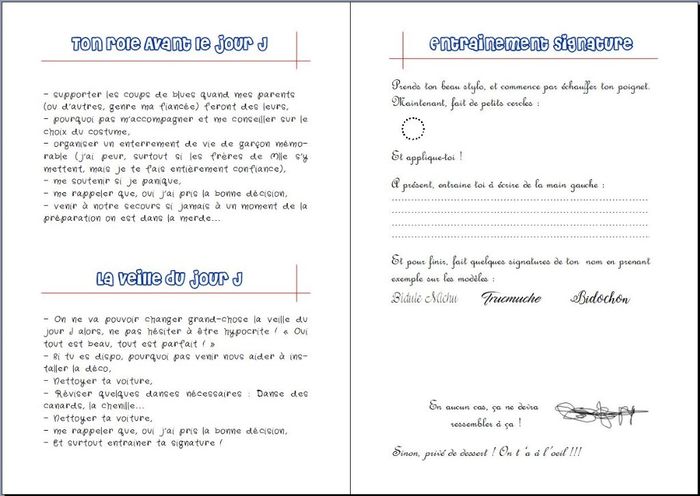 Ton role Avant le jour J
- supporter les coups de blues quand mes parents
(ou d'autres, genre ma fiancée) feront des leurs,
- pourquoi pas m'accompagner et me conseiller sur le
choix du costume,
- organiser un enterrement de vie de garçon mémo-
rable (j'ai peur, surtout si les frères de Mlle s'y
mettent, mais je te fais entièrement confiance),
- me soutenir si je panique,
- me rappeler que, oui j'ai pris la bonne décision,
- venir à notre secours si jamais à un moment de la
préparation on est dans la merde...
La veille du jour J
- On ne va pouvoir changer grand-chose la veille du
jour J alors, ne pas hésiter à être hypocrite ! « Oui
tout est beau, tout est parfait ! »
- Si tu es dispo, pourquoi pas venir nous aider à ins-
taller la déco,
- Nettoyer ta voiture,
- Réviser quelques danses nécessaires : Danse des
canards, la chenille...
- Nettoyer ta voiture,
- me rappeler que, oui j'ai pris la bonne décision,
- Et surtout entrainer ta signature !
entrainement signature
Prends ton beau stylo, et commence par échauffer ton poignet.
Maintenant, fait de petits cercles :
Et applique-toi !
A présent, entraine toi à écrire de la main gauche :
Et pour finir, fait quelques signatures de ton nom en prenant
exemple sur les modèles :
Bidule Machu Trucmuche Bidochon
En aucun cas, ça ne devra
ressembler à ça !
Sinon, privé de dessert ! On t'a à l'oeil !!!